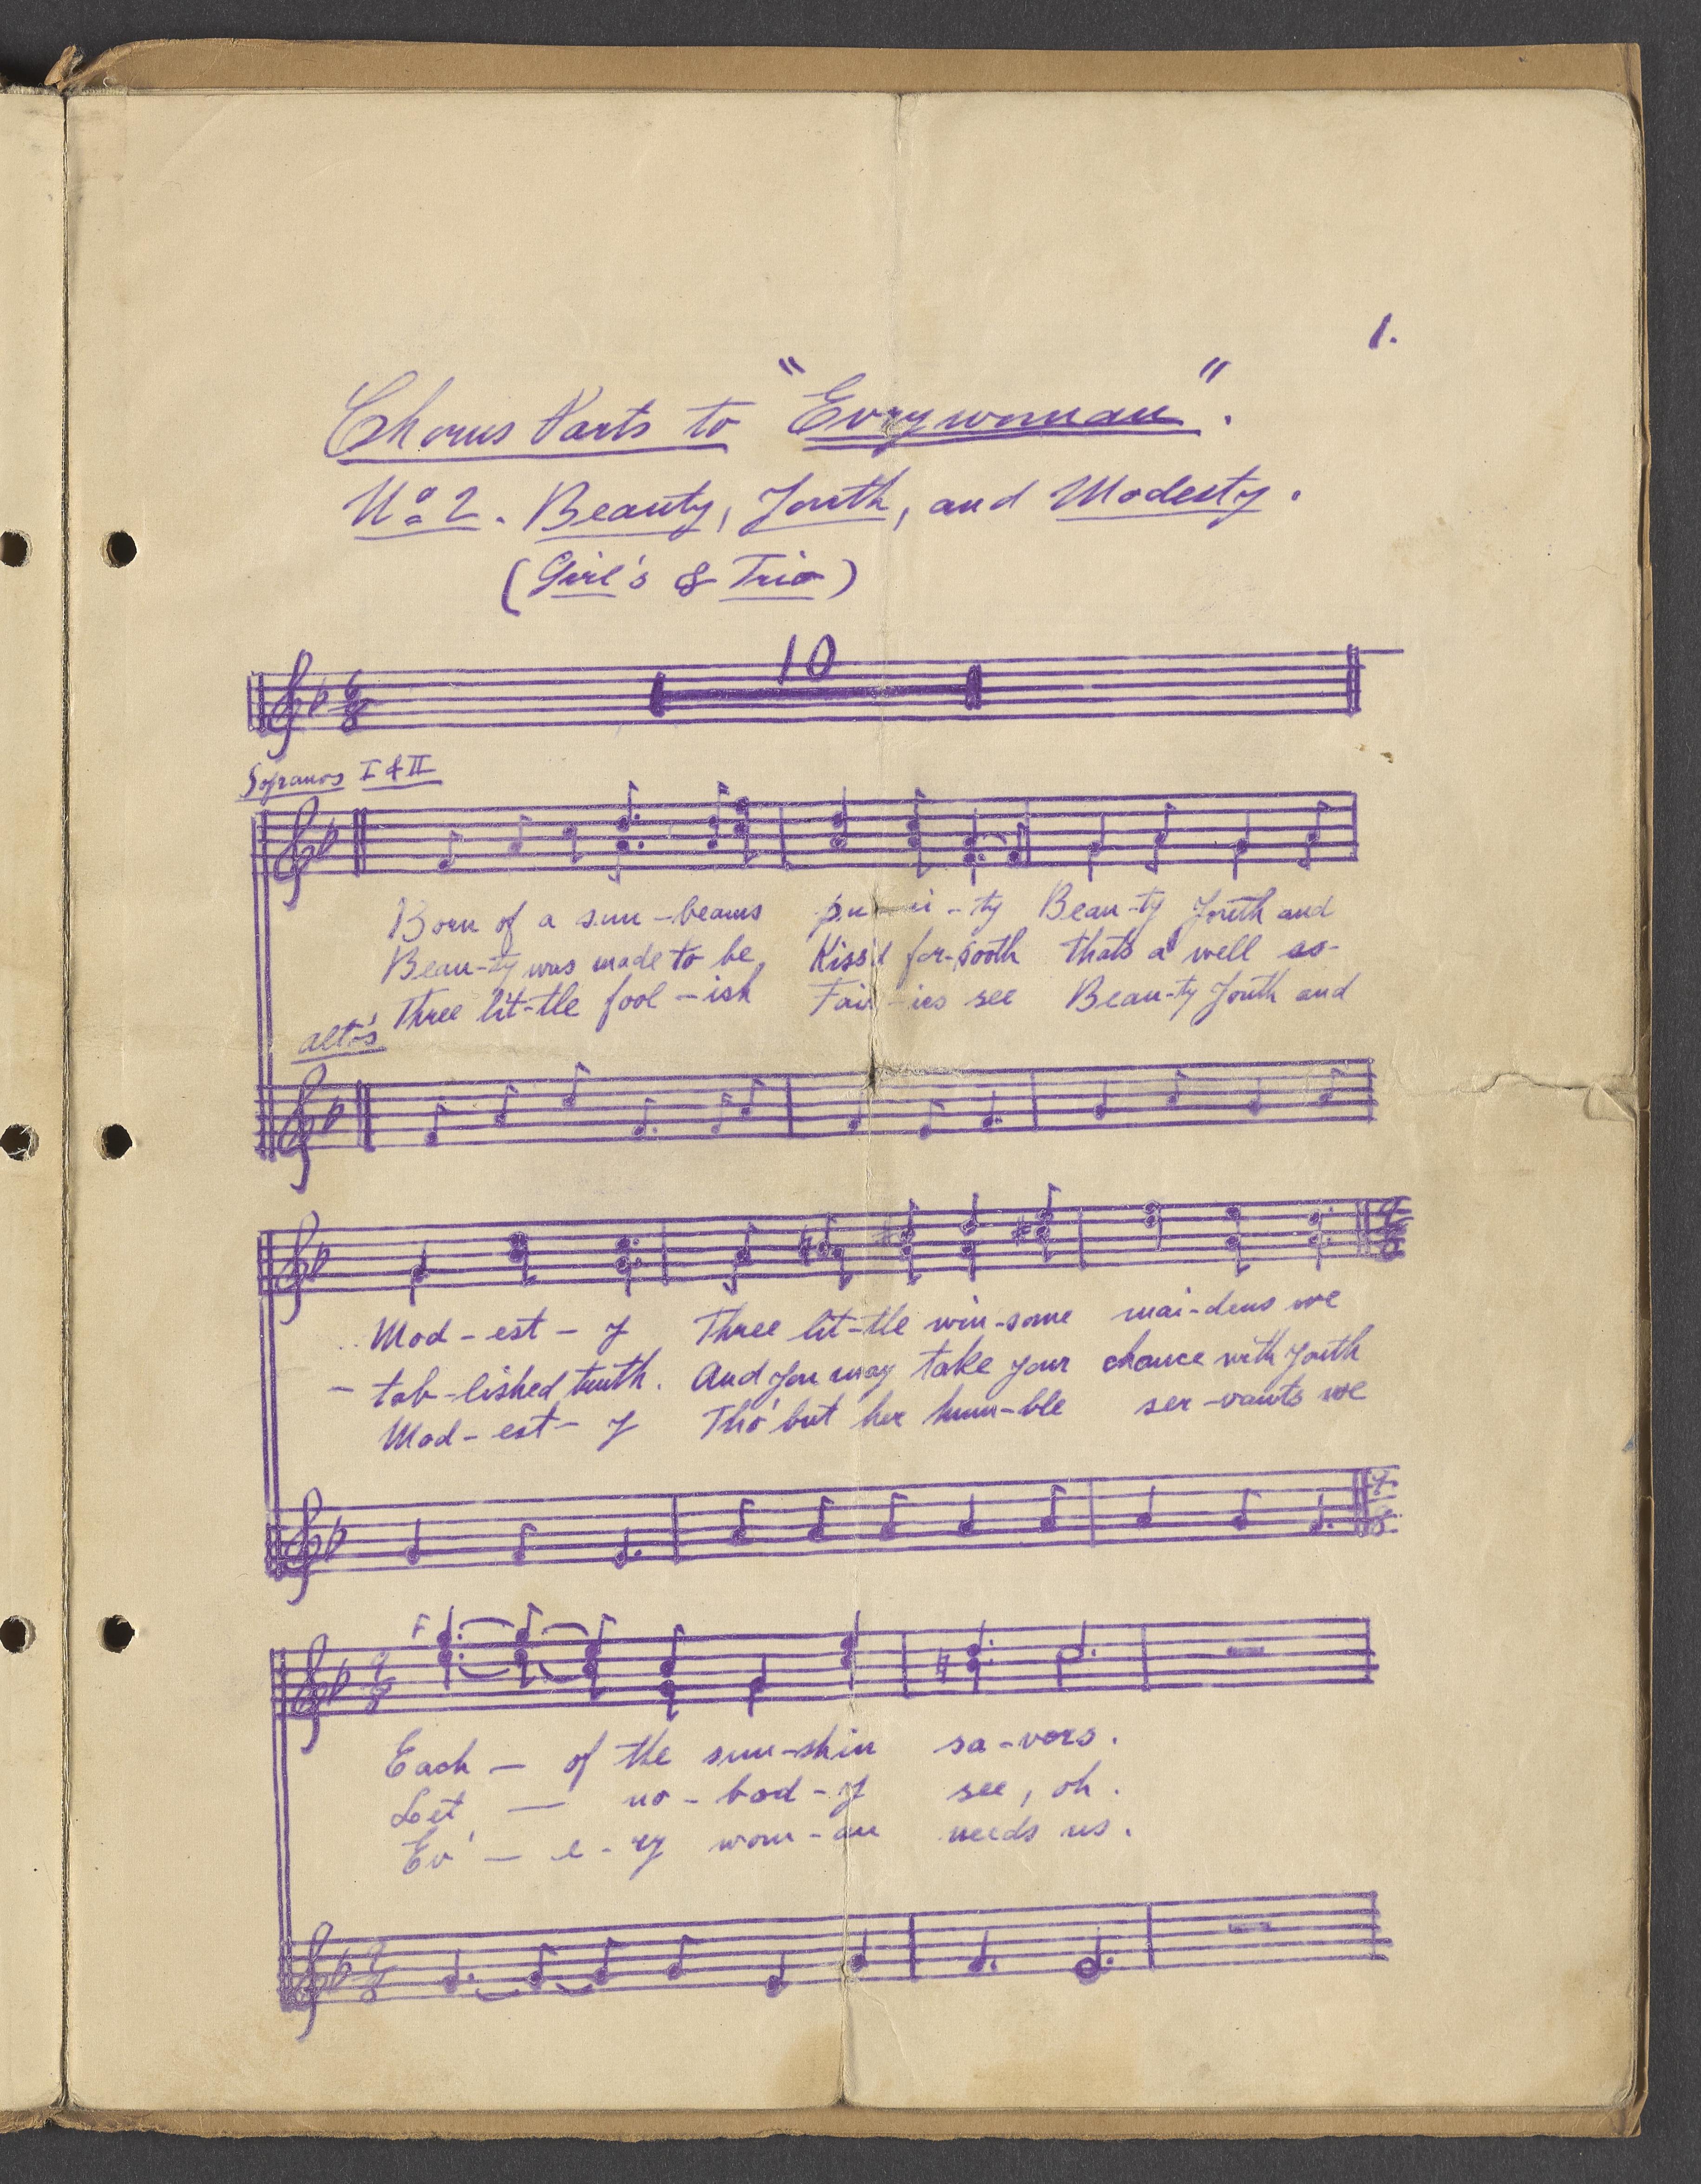 1.
Chorus Parts to "Evrywoman".
No 2. Beauty, Youth, and Modesty.
(Girl's & Trio)
10
6 8
Sopranos I & II
Born of a sun-beams pu-ri-ty Beau-ty Youth and
Beau-ty was made to be, Kiss'd for-sooth thats a well es-
Three lit-tle fool-ish Fair-ies see Beau-ty Youth and
alto's
Mod-est-y Three lit-tle win-some mai-dens we
-tab-lished truth. And you may take your chance with Youth
Mod-est-y Tho' but her hum-ble ser-vants we
9 8
Each — of the sun-shin sa-vors.
Let — no-bod-y see, oh.
Ev' — e-ry wom-an needs us.
9 8